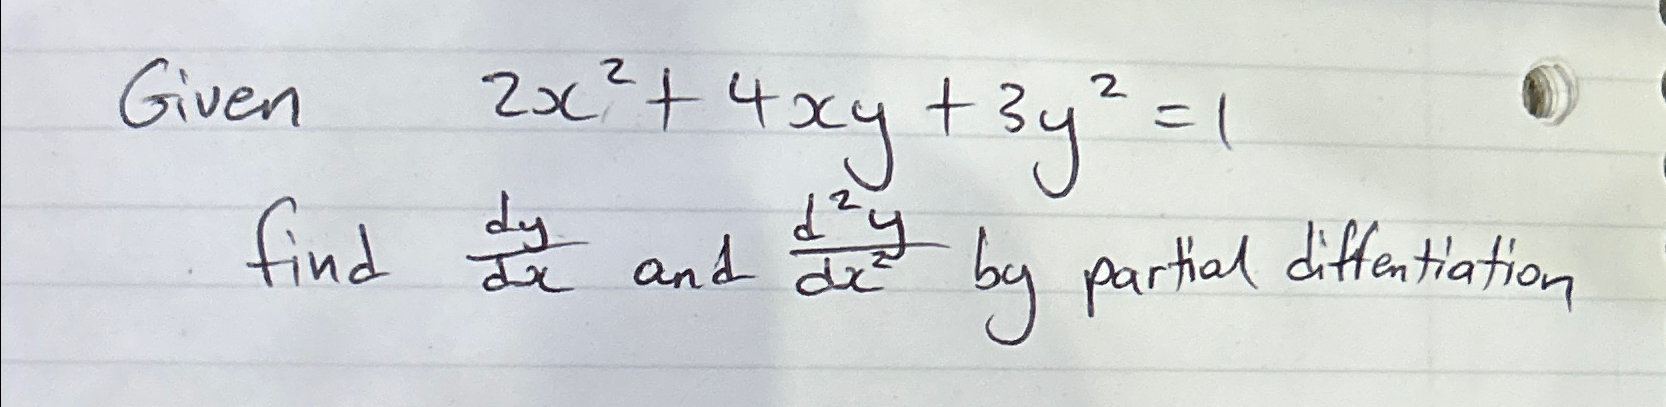 Given 2x² + 4xy + 3y² = 1
find dy/dx and d²y/dx² by partial diffentiation